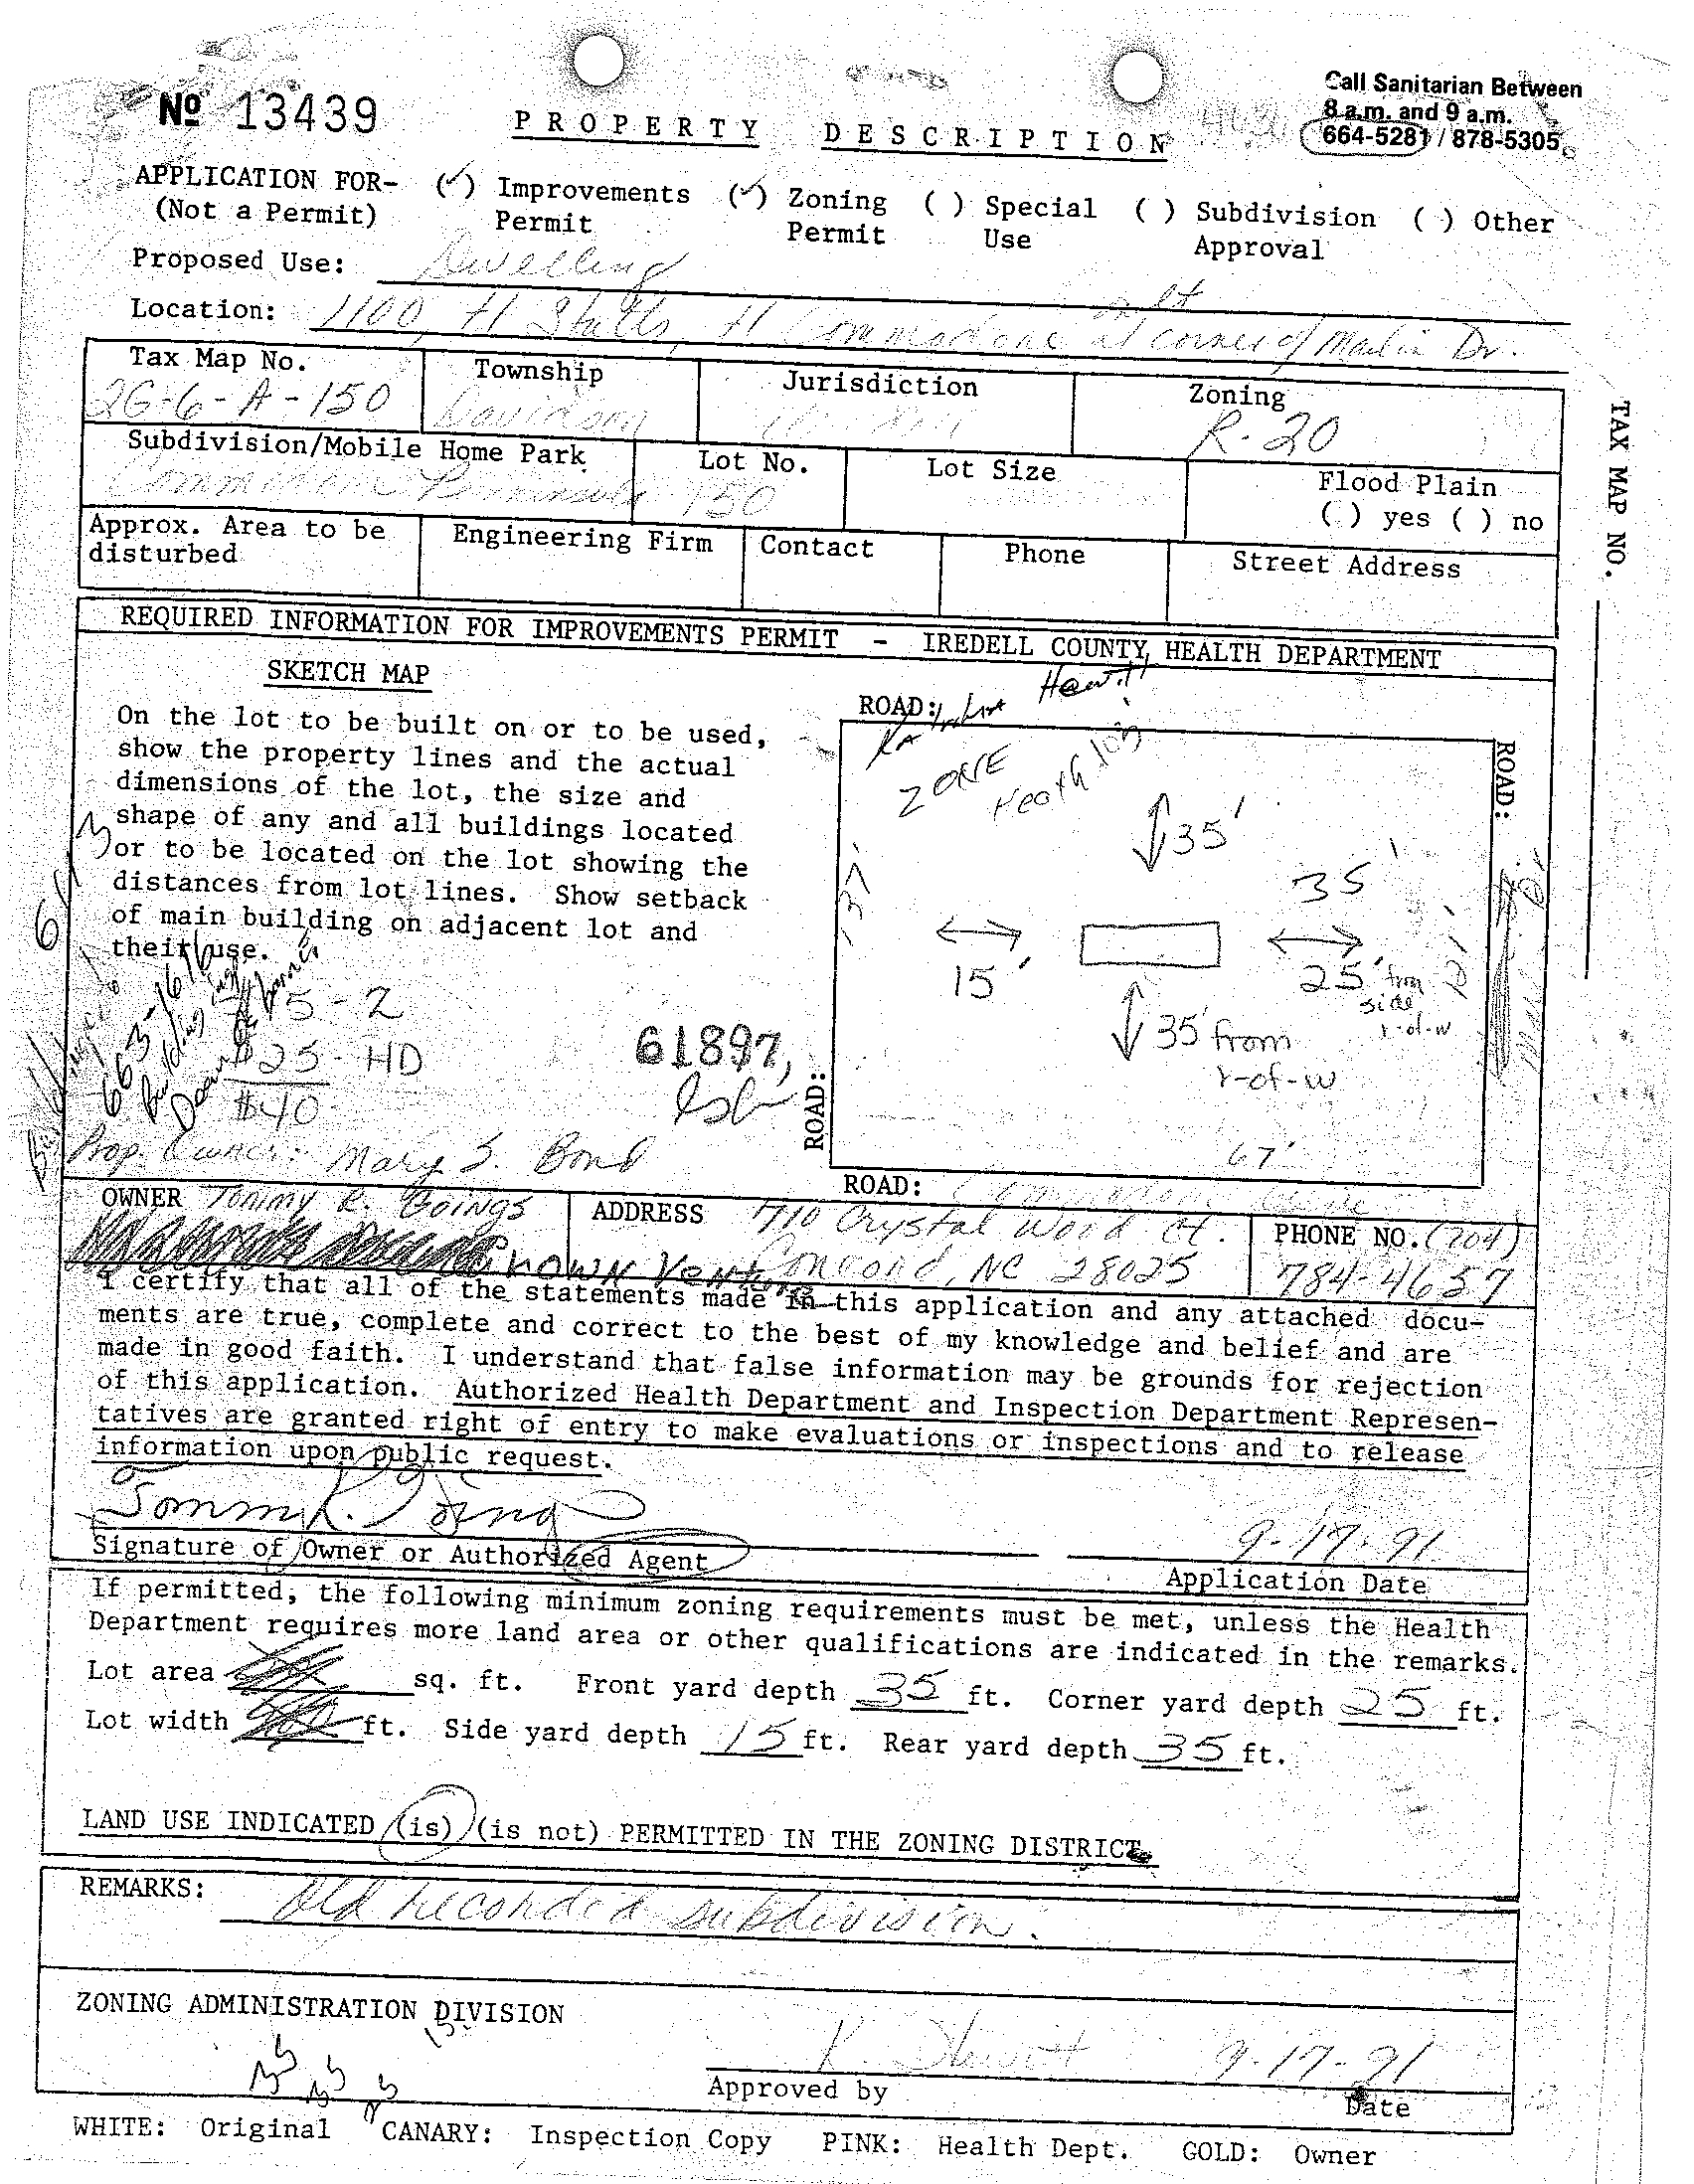 Nº 13439
PROPERTY DESCRIPTION
Call Sanitarian Between
8 a.m. and 9 a.m.
664-5281 / 878-5305
APPLICATION FOR- (✓) Improvements (✓) Zoning ( ) Special ( ) Subdivision ( ) Other
(Not a Permit) Permit Permit Use Approval
Proposed Use: Dwelling
Location: 1100, tl Commodore at corner of Dr.
Tax Map No. Township Jurisdiction Zoning
2G-6-A-150 Davidson R-20
Subdivision/Mobile Home Park Lot No. Lot Size Flood Plain
Commodore Peninsula 150 ( ) yes ( ) no
Approx. Area to be Engineering Firm Contact Phone Street Address
disturbed
TAX MAP NO.
REQUIRED INFORMATION FOR IMPROVEMENTS PERMIT - IREDELL COUNTY HEALTH DEPARTMENT
SKETCH MAP
On the lot to be built on or to be used,
show the property lines and the actual
dimensions of the lot, the size and
shape of any and all buildings located
or to be located on the lot showing the
distances from lot lines. Show setback
of main building on adjacent lot and
their use.
663-1616
15-Z
$25-HD
$40
61897
Prop. Owner: Mary S. Bond
ROAD: Hewitt
ZONE
35'
35'
137'
15'
25' from
side
r-of-w
35' from
r-of-w
67'
ROAD:
ROAD:
ROAD: Commodore
OWNER Tommy R. Goings ADDRESS 1710 Crystal Wood Ct. PHONE NO. (704)
Concord, NC 28025 784-4657
I certify that all of the statements made in this application and any attached docu-
ments are true, complete and correct to the best of my knowledge and belief and are
made in good faith. I understand that false information may be grounds for rejection
of this application. Authorized Health Department and Inspection Department Represen-
tatives are granted right of entry to make evaluations or inspections and to release
information upon public request.
9-17-91
Signature of Owner or Authorized Agent Application Date
If permitted, the following minimum zoning requirements must be met, unless the Health
Department requires more land area or other qualifications are indicated in the remarks.
Lot area sq. ft. Front yard depth 35 ft. Corner yard depth 25 ft.
Lot width ft. Side yard depth 15 ft. Rear yard depth 35 ft.
LAND USE INDICATED (is) (is not) PERMITTED IN THE ZONING DISTRICT
REMARKS: Old recorded subdivision.
ZONING ADMINISTRATION DIVISION
K. Hewitt 9-17-91
Approved by Date
WHITE: Original CANARY: Inspection Copy PINK: Health Dept. GOLD: Owner